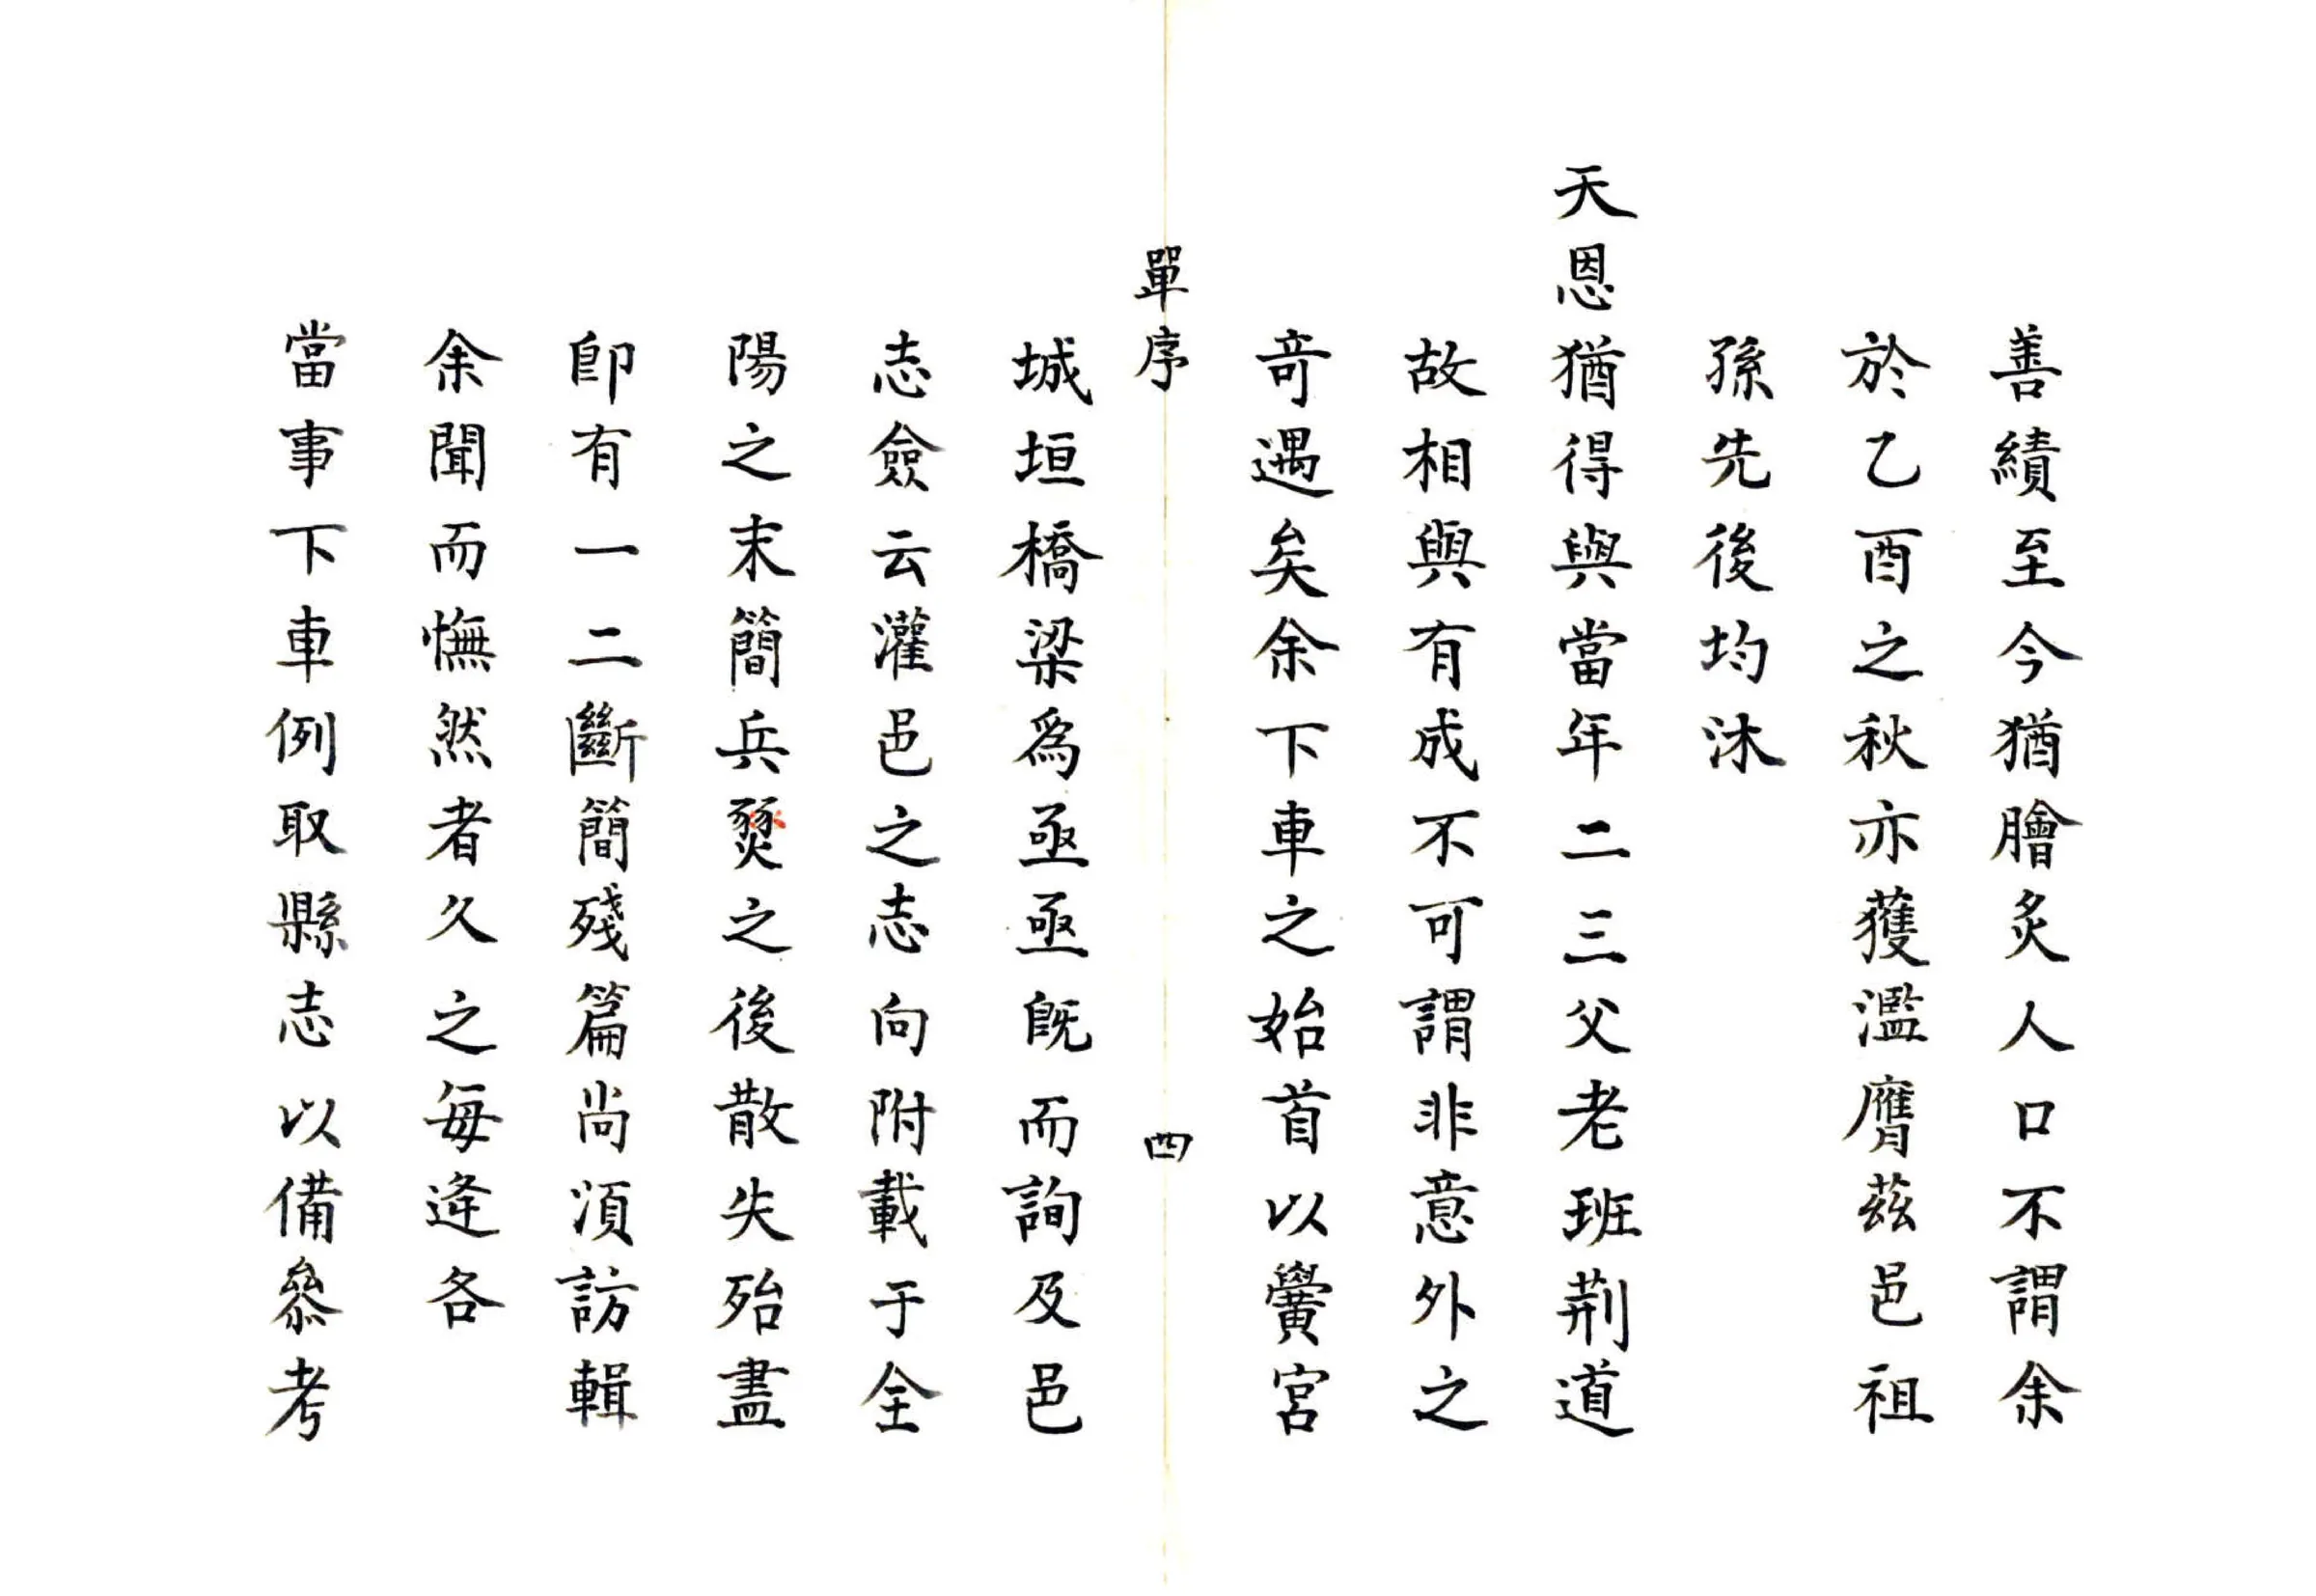 善績至今猶膾炙人口不謂余
於乙酉之秋亦獲濫膺茲邑祖
孫先後均沐
天恩猶得與當年二三父老班荆道
故相與有成不可謂非意外之
奇遇矣余下車之始首以黌宮
單序 四
城垣橋梁爲亟亟旣而詢及邑
志僉云灌邑之志向附載于全
陽之末簡兵燹之後散失殆盡
卽有一二斷簡殘篇尚須訪輯
余聞而憮然者久之每逢各
當事下車例取縣志以備參考